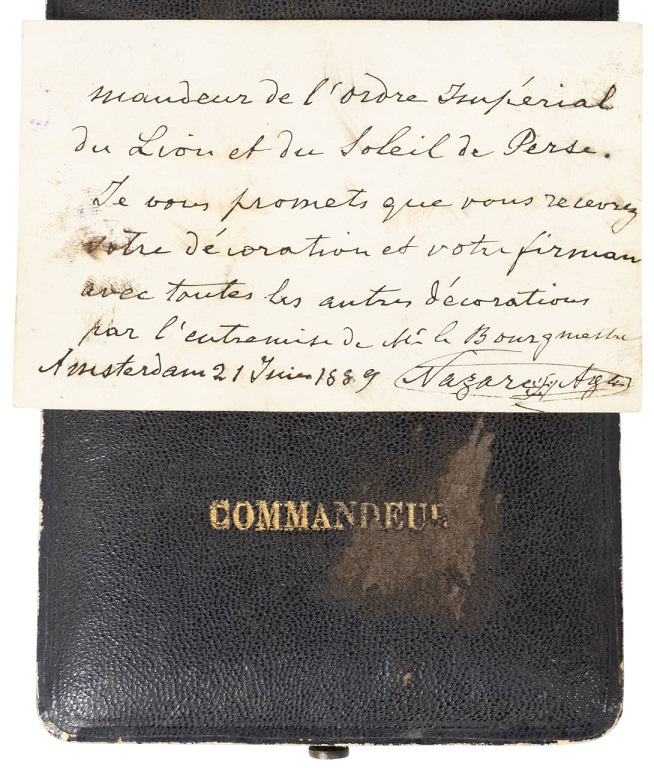 mandeur de l'ordre Impérial
du Lion et du Soleil de Perse.
Je vous promets que vous recevrez
votre décoration et votre firman
avec toutes les autres décorations
par l'entremise de Mr le Bourgmestre
Amsterdam 21 Juin 1889 Nazare Aga
COMMANDEUR